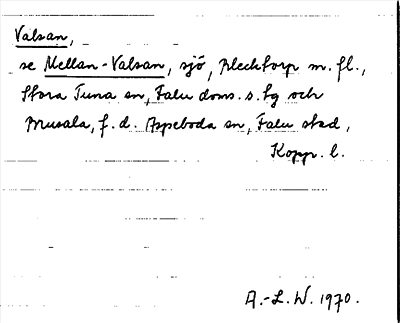 Valsan,
se Mellan-Valsan, sjö, Blecktorp m. fl.,
Stora Tuna sn, Falu doms. s. tg och
Brusala, f. d. Aspeboda sn, Falu stad,
Kopp. l.
A.-L. W. 1970.